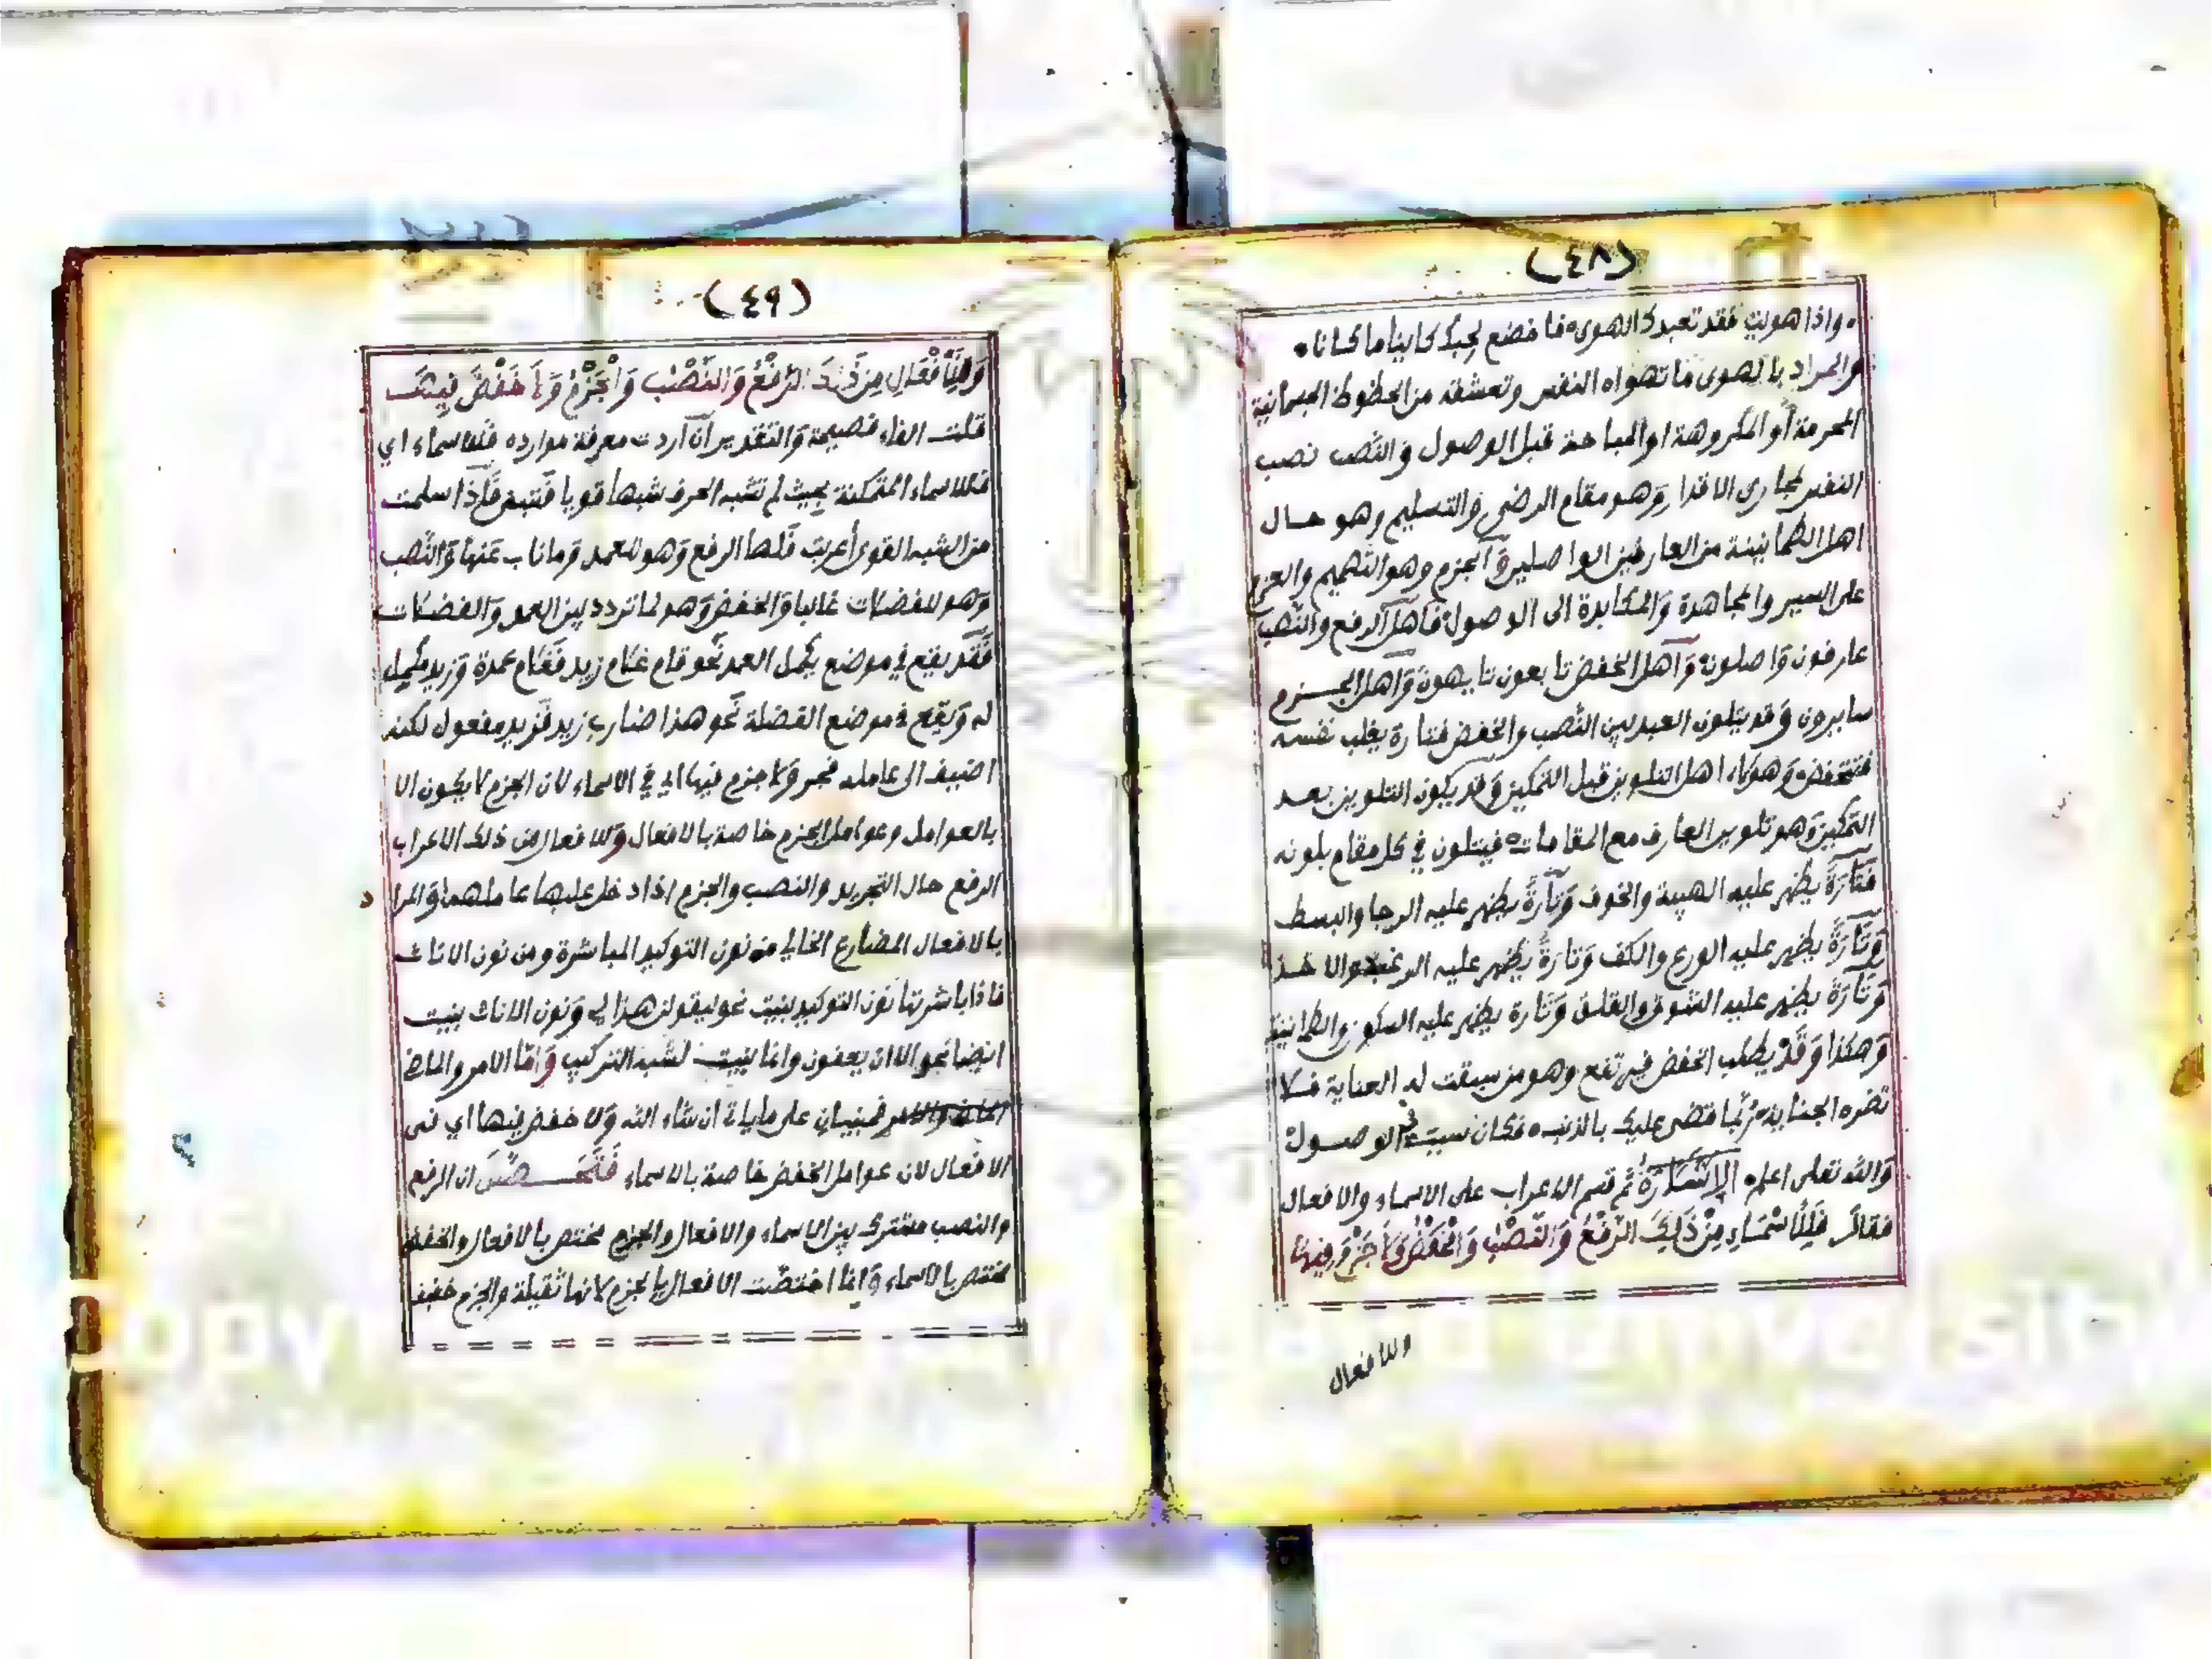 (٤٨)
واذا هويت فقد تعبدك الهوى فاخضع لحبك كاينا ما كانا
والمراد بالهوى ما تهواه النفس وتعشقه من الحظوظ الجسمانية
المحرمة أو المكروهة او المباحة قبل الوصول وَالنَّصب نصب
النفس لمجاري الاقدار وَهو مقام الرضى وَالتسليم وهو حال
اهل الطمانينة من العارفين الواصلين وَالجزم وهو التصميم والعزم
على السير والمجاهدة وَالمكابدة الى الوصول فَاهل الرفع والنَّصب
عارفون وَاصلون وَاَهل الخفض تابعون تايهون وَاهل الجزم
سايرون وَقد يتلون العبد بين النَّصب والخفض فتارة يغلب نفسه
فتنخفض وَهولاء اهل التلوين قبل التمكين وَقد يكون التلوين بعد
التمكين وَهو تلوين العارف مع المقامات فيتلون في كل مقام بلونه
فَتَارَةً يظهر عليه الهيبة والخوف وَتَارَةً يظهر عليه الرجا والبسط
وَتَارَةً يظهر عليه الورع والكف وَتارةً يظهر عليه الرغبة والاخذ
وَتَارَةً يظهر عليه الشوق والقلق وَتَارة يظهر عليه السكون والطمانينة
وَهكذا وَقَدْ يطلب الخفض فيرتفع وهو من سبقت له العناية فلا
تضره الجناية رُبَّما قضى عليك بالذنب فكان سبب في الوصول
وَالله تعلى اعلم الاِشَارَةُ ثم قسم الاعراب على الاسماء والافعال
فقالَ فَلِلْأَسْمَاءِ مِنْ ذَلِكَ الرَّفْعُ وَالنَّصْبُ وَالْخَفْضُ وَلَا جَزْمَ فِيهَا
وللافعال
(٤٩)
وَلِلْأَفْعَالِ مِنْ ذَلِكَ الرَّفْعُ وَالنَّصْبُ وَالْجَزْمُ وَلَا خَفْضَ فِيهَا
قلت الفاء فصيحة وَالتقدير اَن اَردت معرفة موارده فللاسماء اي
فللاسماء المتمكنة بحيث لم تشبه الحرف شبها قويا فتبنى فَاِذا سلمت
من الشبه القوى أعربت فَلها الرفع وَهو للعمد وَماناب عَنها وَالنَّصب
وَهو للفضلات غالبا وَالخفض وَهو لما تردد بين العمد وَالفضلات
فَقَد يقع في موضع يكمل العمد نَحو قام غلام زيد فَغلام عمدة وَزيد مكمل
له وَيقع في موضع الفضلة نَحو هذا ضارب زيد فَزيد مفعول لكنه
اضيف الى عامله فجر وَلاجزم فيها اي في الاسماء لان الجزم لا يكون الا
بالعوامل وعوامل الجزم خاصة بالافعال وَللافعال من ذلك الاعراب
الرفع حال التجريد والنصب والجزم اذا دخل عليها عاملهما وَالمرا د
بالافعال المضارع الخالي من نون التوكيد المباشرة ومن نون الاناث
فاذا باشرتها نون التوكيد بنيت نحو ليقولن هذا لي وَنون الاناث بنيت
ايضا نحو الا ان يعفون وانما بنيت لشبه التركيب وَامّا الامر والماض
فمبنيان على ما ياتي ان شاء الله وَلا خفض فيها اي فى
الافعال لان عوامل الخفض خاصة بالاسماء فَتَحَصَّلَ ان الرفع
والنصب مشترك بين الاسماء والافعال والجزم مختص بالافعال والخفض
مختص بالاسماء وَانما اختصَّت الافعال بالجزم لانها ثقيلة والجزم خفيف